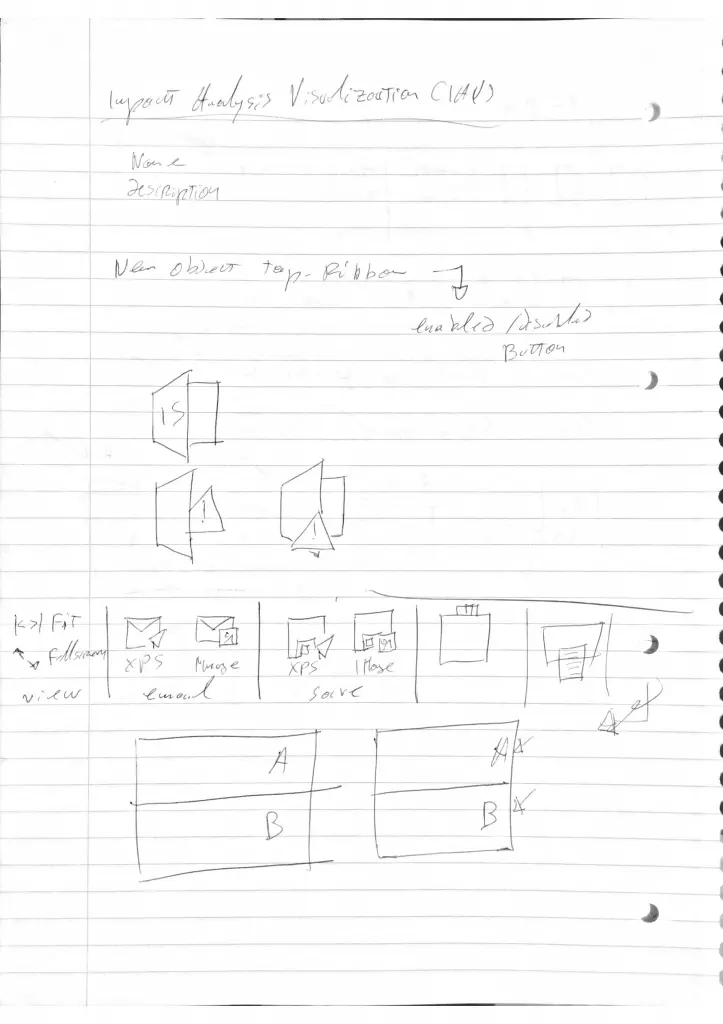 Impact Analysis Visualization (IAV)
Name
Description
New object top-Ribbon
enabled / disabled
Button
IS
!
!
|<>| Fit
Fullscreen
view
XPS Image
email
XPS Image
save
A
B
A
B